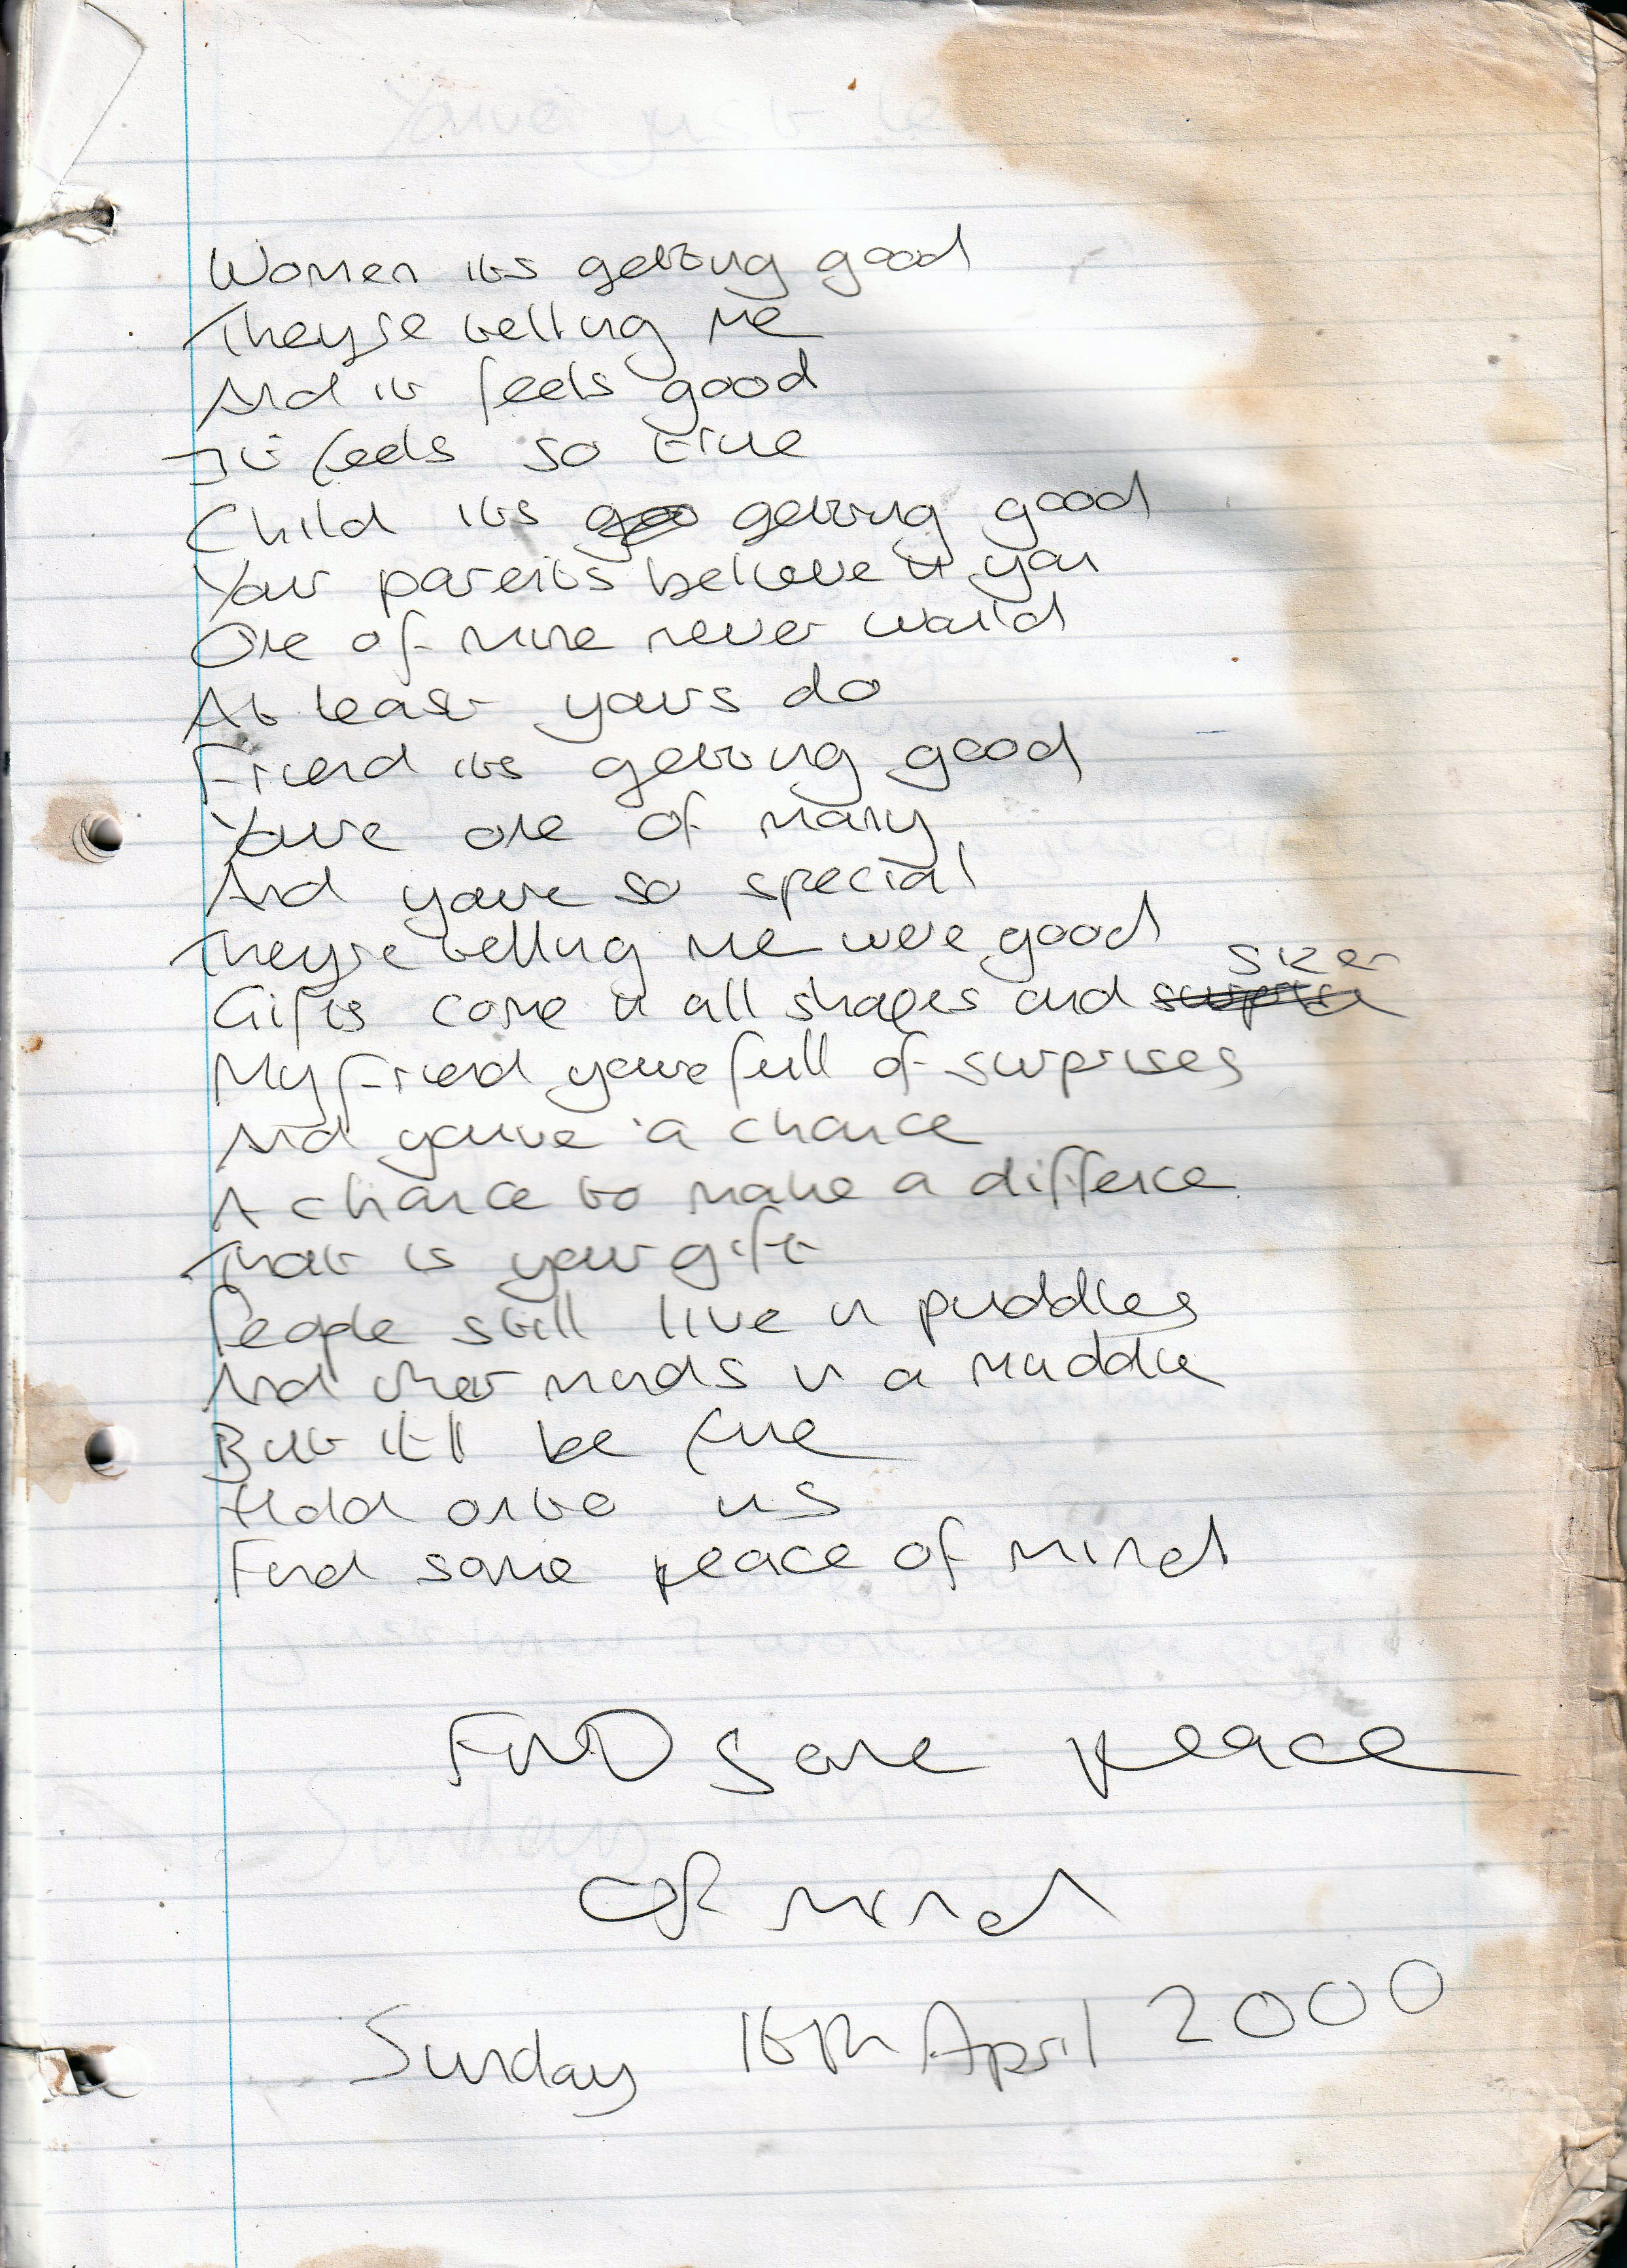 Women its getting good
They're telling me
And it feels good
It feels so true
Child its goo getting good
Your parents believe in you
One of mine never would
At least yours do
Friend its getting good
Youre one of many
And youre so special
They're telling me were good
Gifts come in all shapes and surprise sizes
My friend youre full of surprises
And youve a chance
A chance to make a differce
That is your gift
People still live in puddles
And their minds in a muddle
But it'll be fine
Hold onto us
Find some peace of mind
FIND some peace
OF mind
Sunday 16th April 2000